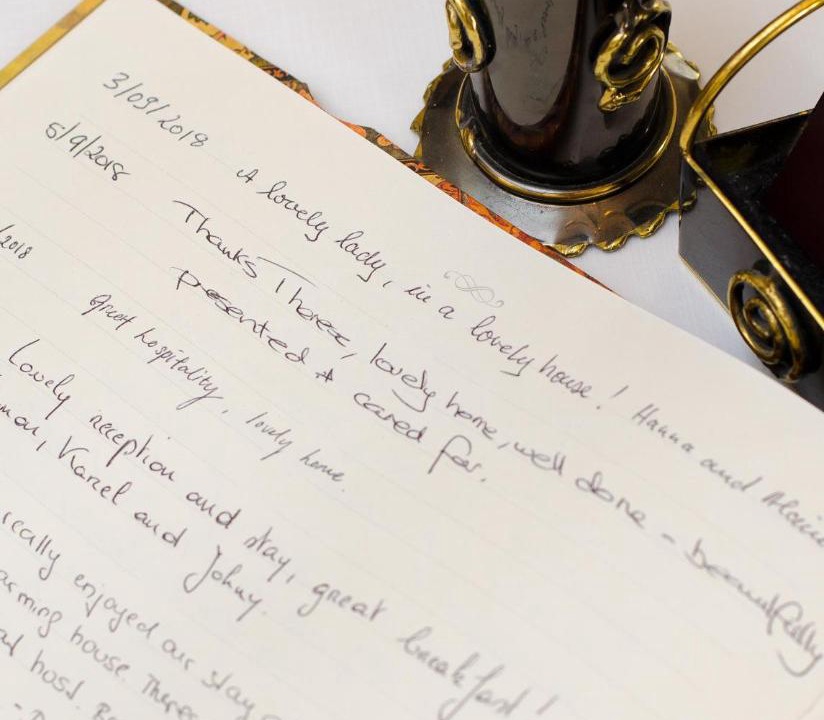 3/09/2018 A lovely lady, in a lovely house! Hanna and
5/9/2018 Thanks Therese, lovely home, well done - beautifully
presented & cared for.
/2018 great hospitality, lovely home.
Lovely reception and stay, great breakfast!
Karel and Johny.
really enjoyed our stay
house. Therese
host.